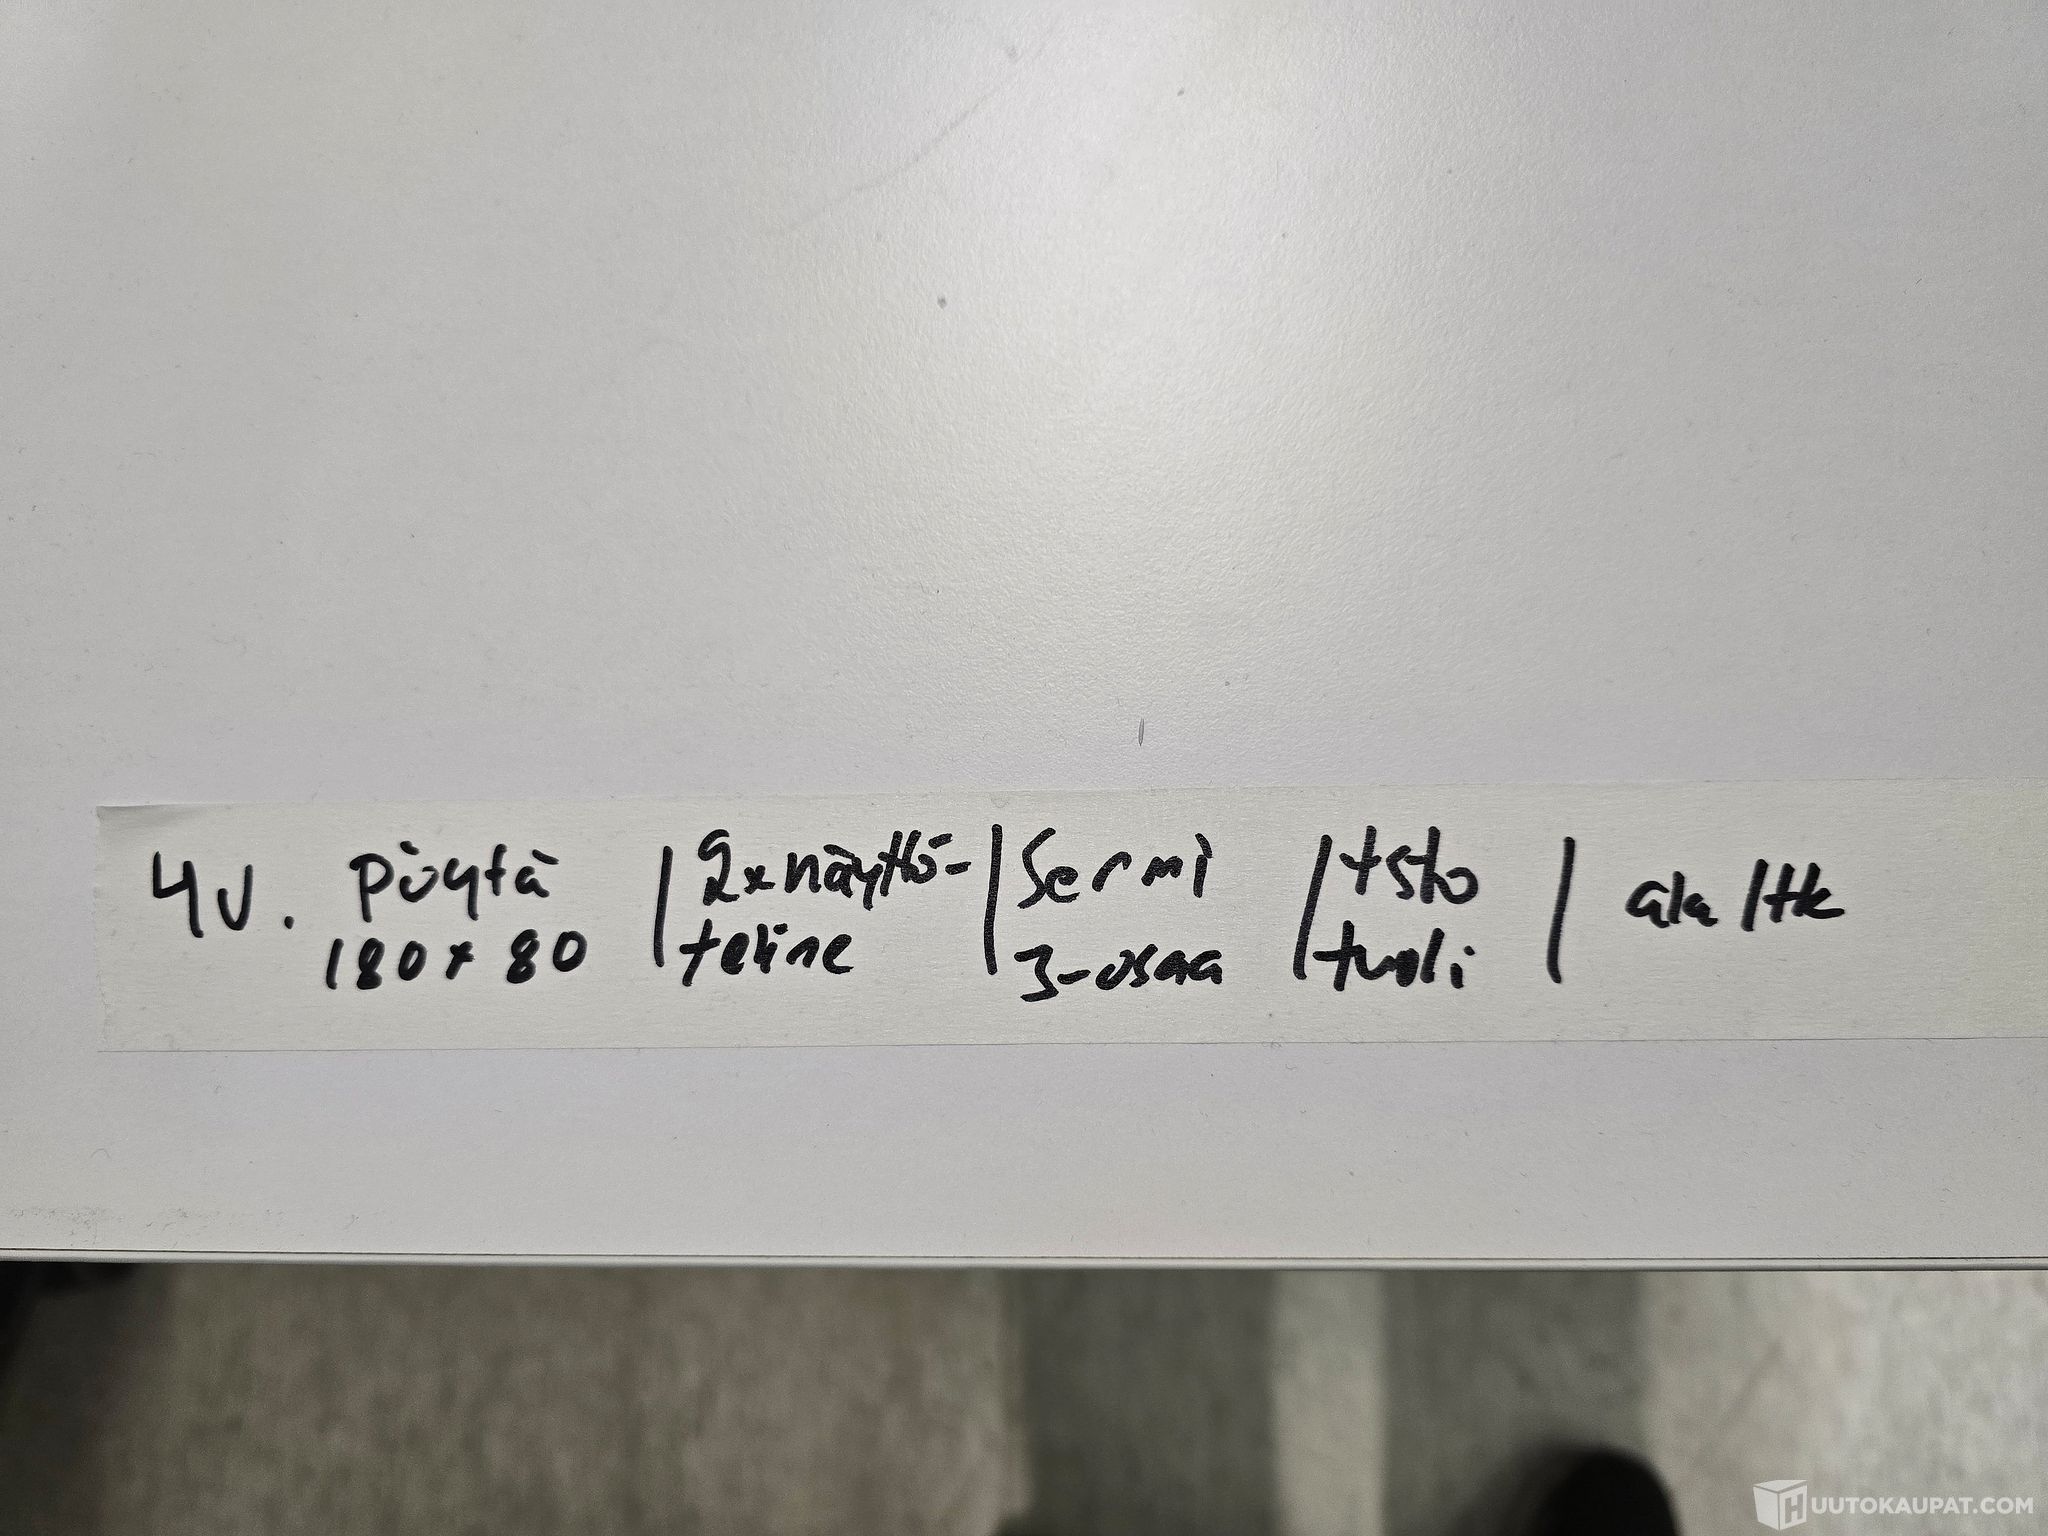 4U. Pöytä 180x80 | 2xnäyttö-teline | Sermi 3-osaa | tsto tuoli | ala ltk
HUUTOKAUPAT.COM